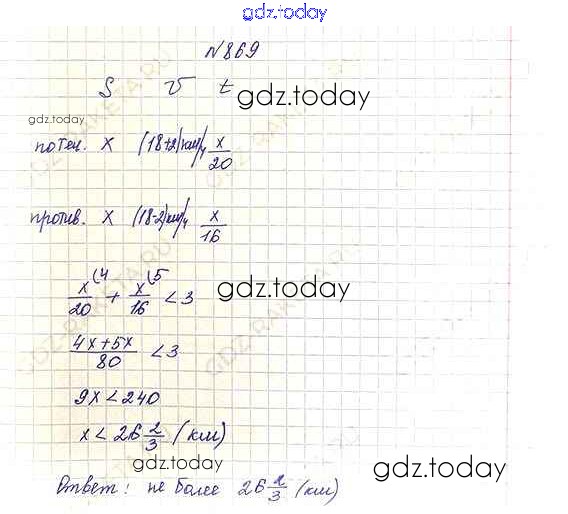 gdz.today
N869
S V t gdz.today
gdz.today
по теч. x (18+2)км/ч x/20
против. x (18-2)км/ч x/16
x/20 (4 + x/16 (5 < 3 gdz.today
4x+5x/80 < 3
9x < 240
x < 26 2/3 (км)
gdz.today gdz.today
Ответ: не более 26 2/3 (км)
GDZ-RAKETA.RU